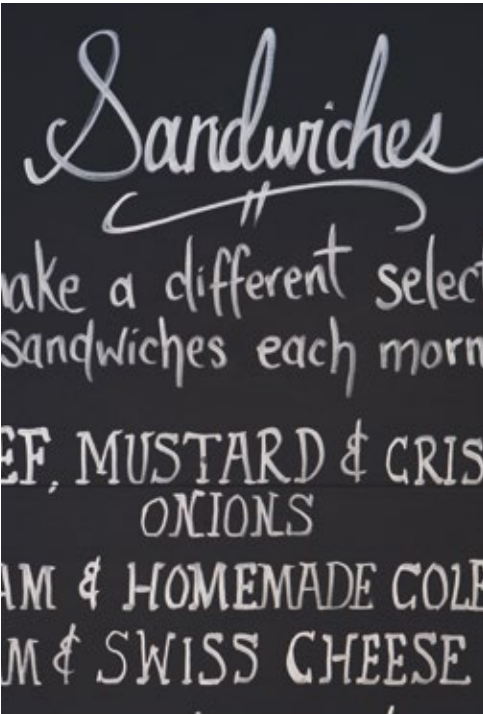 Sandwiches
ake a different select
sandwiches each morn
EF, MUSTARD & CRIS
ONIONS
AM & HOMEMADE COLE
M & SWISS CHEESE